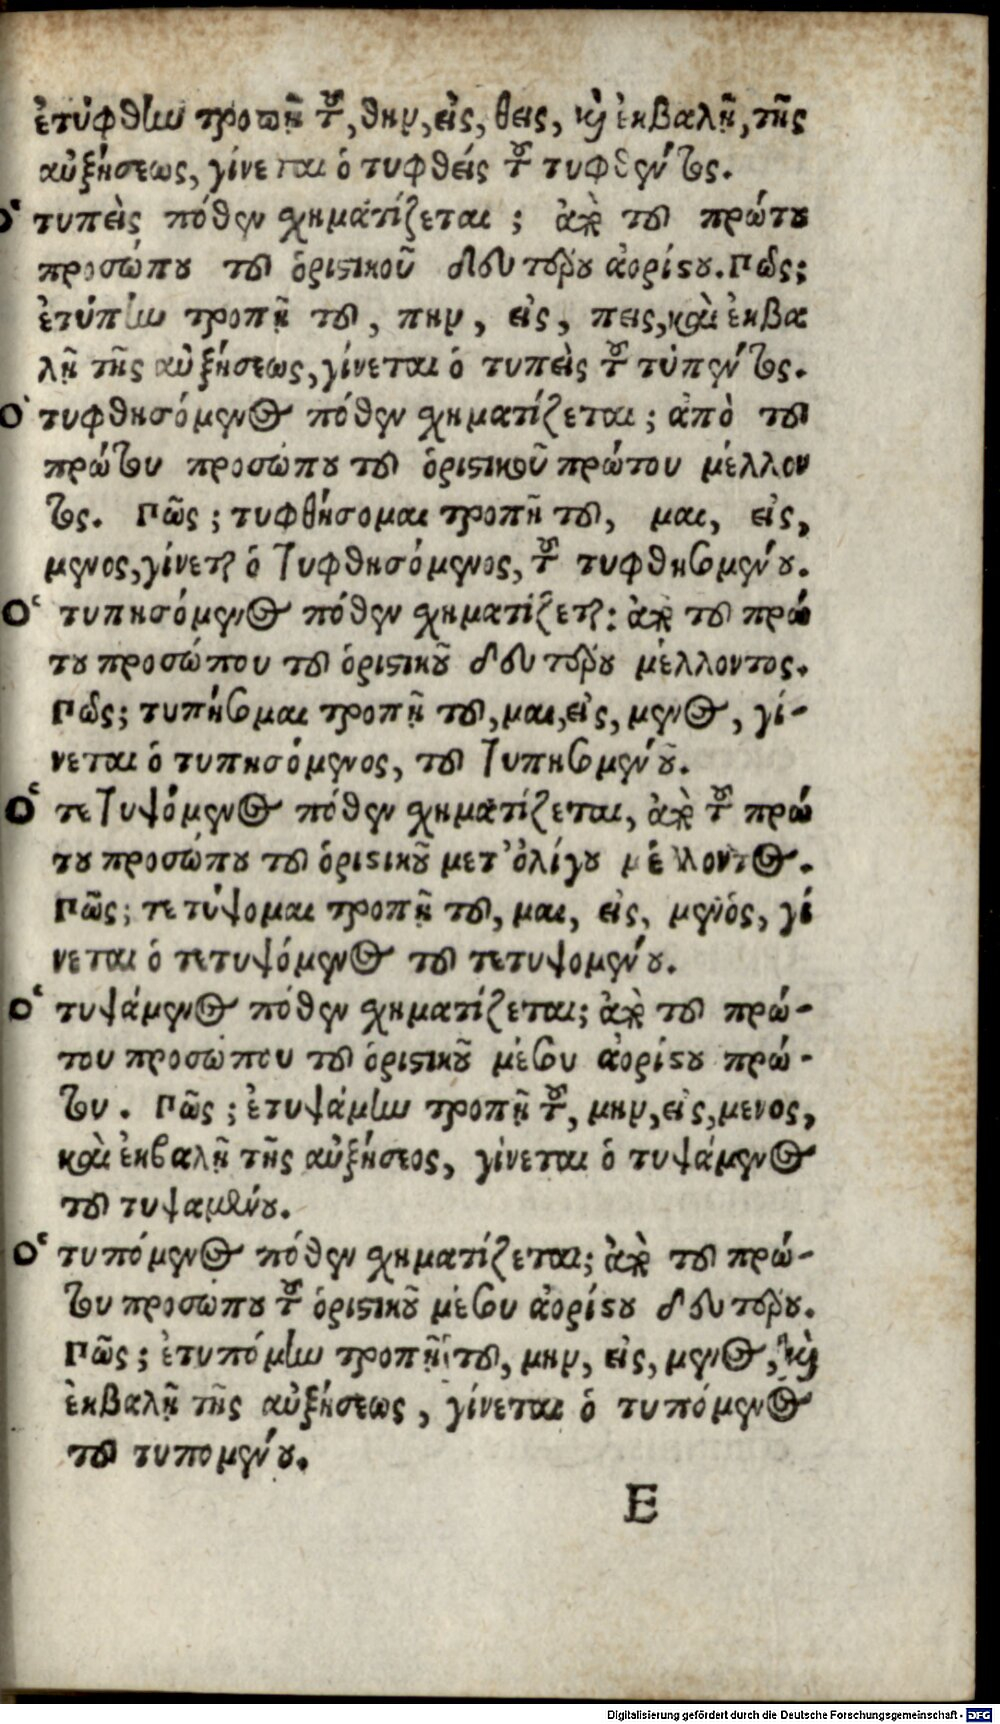 ἐτύφθην τροπῇ τοῦ, θην, εἰς, θεις, καὶ ἐκβαλῇ, τῆς
αὐξήσεως, γίνεται ὁ τυφθείς τοῦ τυφθέντος.
Ὁ τυπεὶς πόθεν σχηματίζεται ; ἀπὸ τοῦ πρώτου
προσώπου τοῦ ὁριστικοῦ δευτέρου ἀορίστου. Πῶς;
ἐτύπην τροπῇ τοῦ, πην, εἰς, πεις, καὶ ἐκβα
λῇ τῆς αὐξήσεως, γίνεται ὁ τυπεὶς τοῦ τύπέντος.
Ὁ τυφθησόμενος πόθεν σχηματίζεται ; ἀπὸ τοῦ
πρώτου προσώπου τοῦ ὁριστικοῦ πρώτου μέλλον
τος. Πῶς ; τυφθήσομαι τροπῇ τοῦ, μαι, εἰς,
μενος, γίνεται ὁ τυφθησόμενος, τοῦ τυφθησομένου.
Ὁ τυπησόμενος πόθεν σχηματίζεται: ἀπὸ τοῦ πρώ
του προσώπου τοῦ ὁριστικοῦ δευτέρου μέλλοντος.
Πῶς; τυπήσομαι τροπῇ τοῦ, μαι, εἰς, μενος, γί-
νεται ὁ τυπησόμενος, τοῦ τυπησομένου.
Ὁ τετυψόμενος πόθεν σχηματίζεται, ἀπὸ τοῦ πρώ
του προσώπου τοῦ ὁριστικοῦ μετ' ὀλίγου μέλλοντος.
Πῶς; τετύψομαι τροπῇ τοῦ, μαι, εἰς, μενὸς, γί
νεται ὁ τετυψόμενος τοῦ τετυψομένου.
Ὁ τυψάμενος πόθεν σχηματίζεται; ἀπὸ τοῦ πρώ-
του προσώπου τοῦ ὁριστικοῦ μέσου ἀορίστου πρώ-
του. Πῶς ; ἐτυψάμην τροπῇ τοῦ, μην, εἰς, μενος,
καὶ ἐκβαλῇ τῆς αὐξήσεος, γίνεται ὁ τυψάμενος
τοῦ τυψαμένου.
Ὁ τυπόμενος πόθεν σχηματίζεται; ἀπὸ τοῦ πρώ-
του προσώπου τοῦ ὁριστικοῦ μέσου ἀορίστου δευτέρου.
Πῶς ; ἐτυπόμην τροπῇ τοῦ, μην, εἰς, μενος, καὶ
ἐκβαλῇ τῆς αὐξήσεως, γίνεται ὁ τυπόμενος
τοῦ τυπομένου.
E
Digitalisierung gefördert durch die Deutsche Forschungsgemeinschaft - DFG